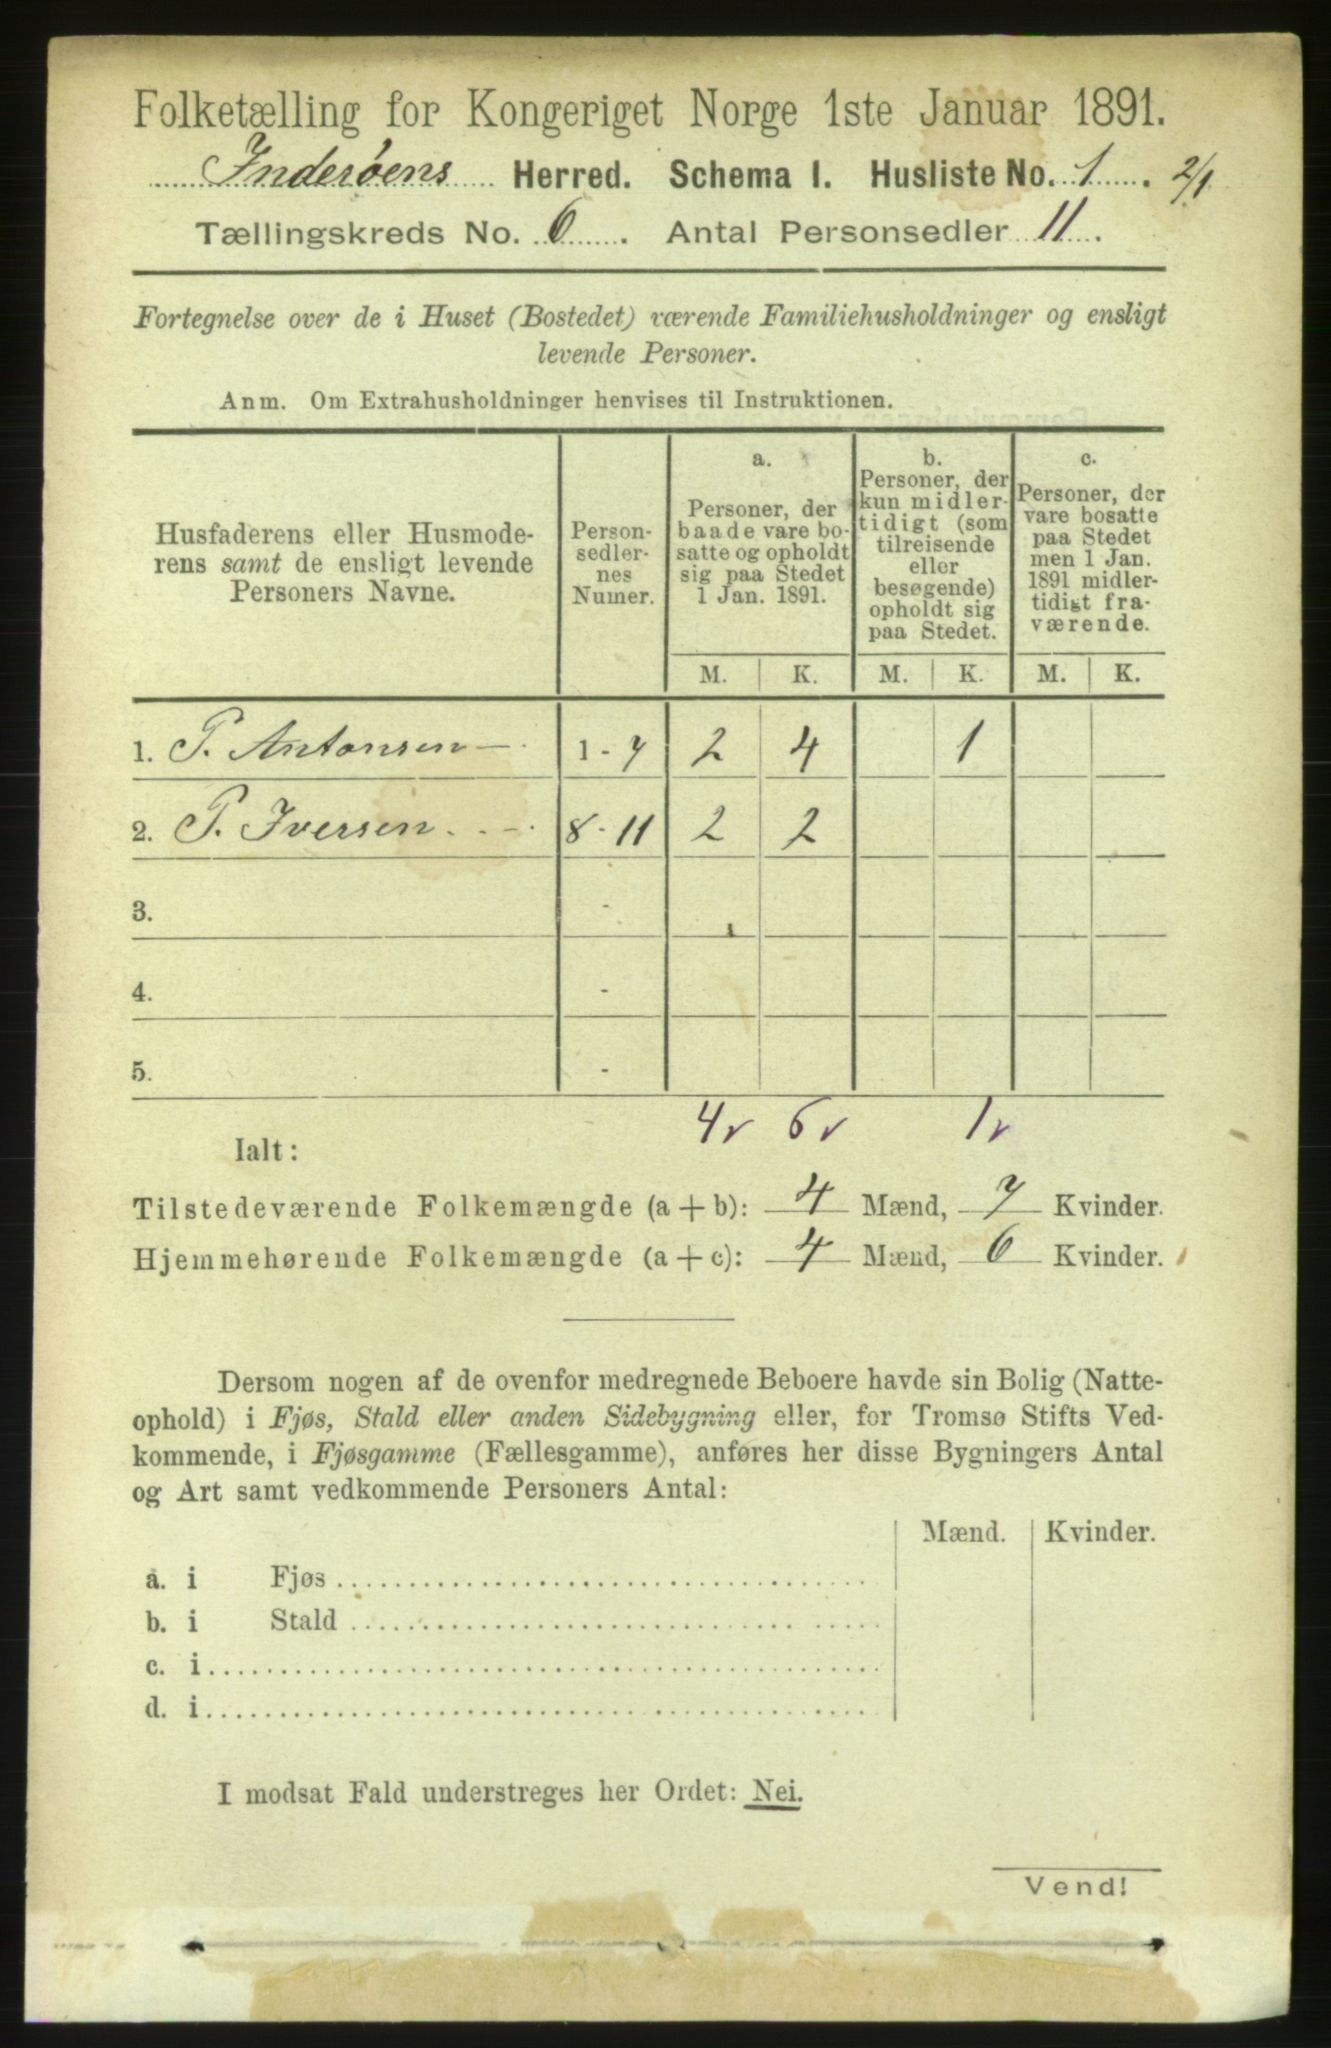 Folketælling for Kongeriget Norge 1ste Januar 1891.
Inderøens Herred. Schema I. Husliste No. 1. 2/1
Tællingskreds No. 6. Antal Personsedler 11.
Fortegnelse over de i Huset (Bostedet) værende Familiehusholdninger og ensligt
levende Personer.
Anm. Om Extrahusholdninger henvises til Instruktionen.
Husfaderens eller Husmode-
rens samt de ensligt levende
Personers Navne.
Person-
sedler-
nes
Numer.
a.
Personer, der
baade vare bo-
satte og opholdt
sig paa Stedet
1 Jan. 1891.
b.
Personer, der
kun midler-
tidigt (som
tilreisende
eller
besøgende)
opholdt sig
paa Stedet.
c.
Personer, der
vare bosatte
paa Stedet
men 1 Jan.
1891 midler-
tidigt fra-
værende.
M. K. M. K. M. K.
1. P. Antonsen 1 - 7 2 4 1
2. P. Iversen 8 - 11 2 2
3. -
4. -
5. -
4 6 1
Ialt:
Tilstedeværende Folkemængde (a + b): 4 Mænd, 7 Kvinder.
Hjemmehørende Folkemængde (a + c): 4 Mænd, 6 Kvinder.
Dersom nogen af de ovenfor medregnede Beboere havde sin Bolig (Natte-
ophold) i Fjøs, Stald eller anden Sidebygning eller, for Tromsø Stifts Ved-
kommende, i Fjøsgamme (Fællesgamme), anføres her disse Bygningers Antal
og Art samt vedkommende Personers Antal:
Mænd. Kvinder.
a. i Fjøs
b. i Stald
c. i
d. i
I modsat Fald understreges her Ordet: Nei.
Vend!